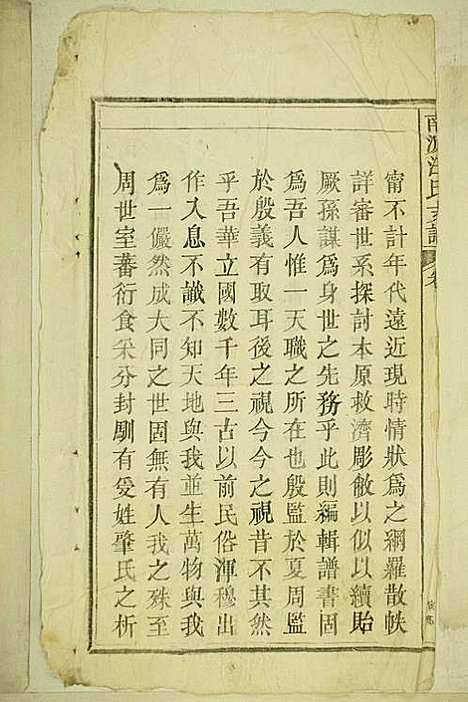 甯不計年代遠近現時情狀爲之網羅散帙
詳審世系探討本原救濟彫敝以似以續貽
厥孫謀爲身世之先務乎此則編輯譜書固
爲吾人惟一天職之所在也殷監於夏周監
於殷義有取耳後之視今今之視昔不其然
乎吾華立國數千年三古以前民俗渾穆出
作入息不識不知天地與我並生萬物與我
爲一儼然成大同之世固無有人我之殊至
周世室蕃衍食采分封馴有爰姓肇氏之析